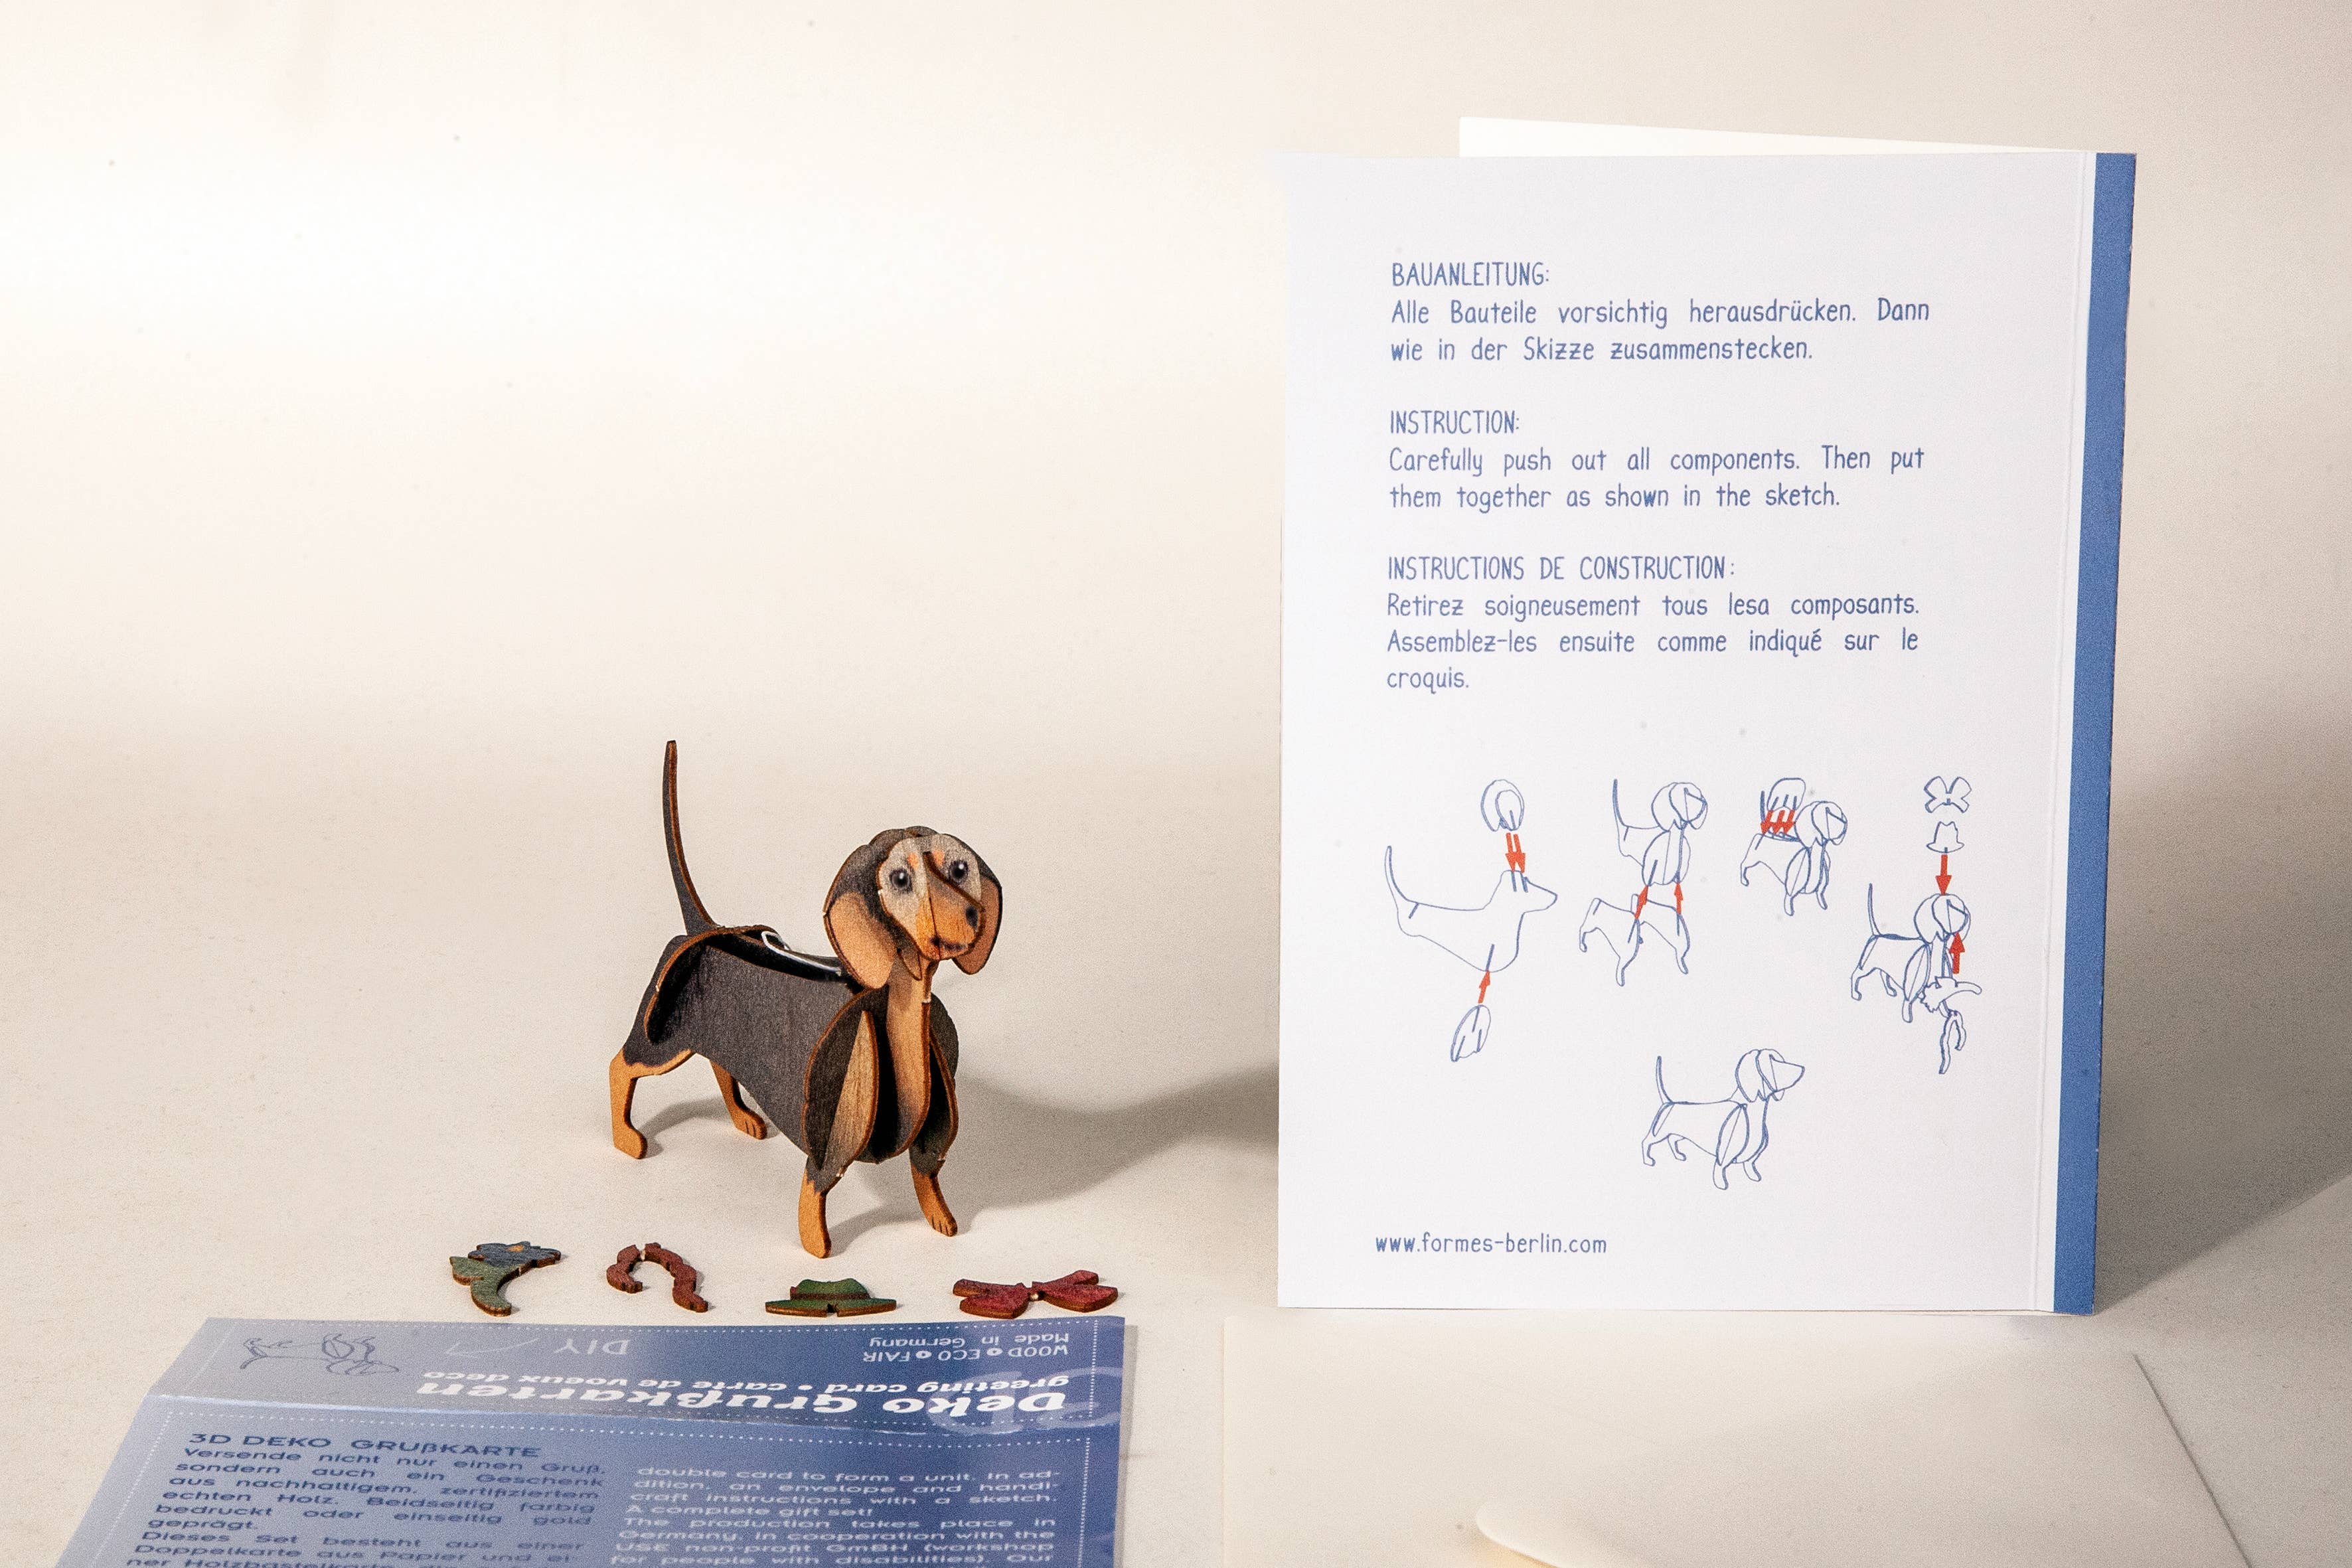 BAUANLEITUNG:
Alle Bauteile vorsichtig herausdrücken. Dann
wie in der Skizze zusammenstecken.
INSTRUCTION:
Carefully push out all components. Then put
them together as shown in the sketch.
INSTRUCTIONS DE CONSTRUCTION:
Retirez soigneusement tous lesa composants.
Assemblez-les ensuite comme indiqué sur le
croquis.
www.formes-berlin.com
Deko Grußkarten
greeting card • carte de voeux deco
WOOD • ECO • FAIR
Made in Germany
DIY
3D DEKO GRUßKARTE
Versende nicht nur einen Gruß,
sondern auch ein Geschenk
aus nachhaltigem, zertifiziertem
echten Holz. Beidseitig farbig
bedruckt oder einseitig gold
geprägt.
Dieses Set besteht aus einer
Doppelkarte aus Papier und ei-
ner Holzbastelkarte
double card to form a unit. In ad-
dition, an envelope and handi-
craft instructions with a sketch.
A complete gift set!
The production takes place in
Germany, in cooperation with the
USE non-profit GmBH (workshop
for people with disabilities). Our